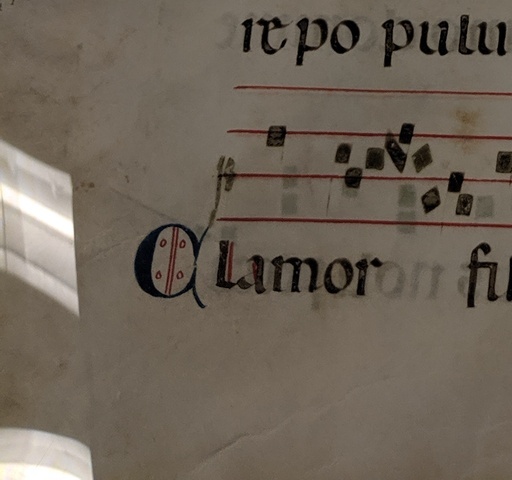 ire popula
Clamor fil